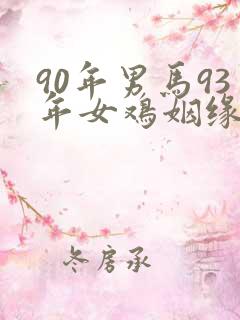 90年男馬93
年女鸡姻缘
冬房承